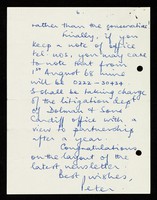 rather than the conservation
Finally, if you
keep a note of office
tel nos. you may care
to note that from
1st August 68 mine
will be 0222-30254
I shall be taking charge
of the litigation dept
of Dolman & Son's
Cardiff office with a
view to partnership
after a year.
Congratulations
on the layout of the
latest newsletter
Best wishes,
Peter